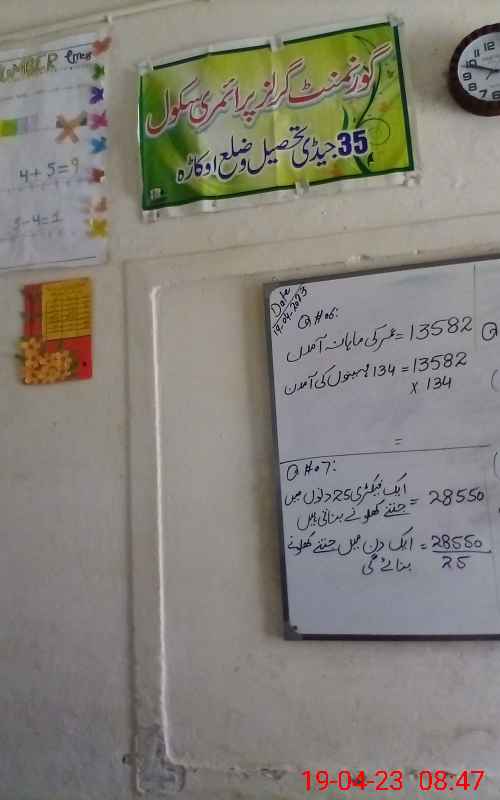 گورنمنٹ گرلز پرائمری سکول
35 جیڈی تحصیل و ضلع اوکاڑہ
4+5=9
-4=1
12
11
10
9
8
7
6
Date
19-04-2023
Q#06:
عمر کی ماہانہ آمدن = 13582
134 مہینوں کی آمدن = 13582
x 134
=
Q#07:
ایک فیکٹری 25 دنوں میں
جتنے کھلونے بناتی ہیں = 28550
ایک دن میں جتنے کھلونے = 28550
بنائے گی 25
19-04-23 08:47